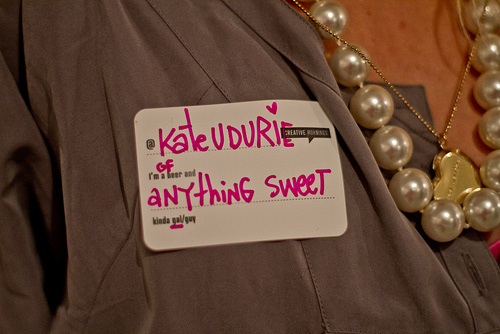 @ Kate UDURIE CREATIVE MORNINGS
of
I'm a beer and
anything sweet
kinda gal/guy